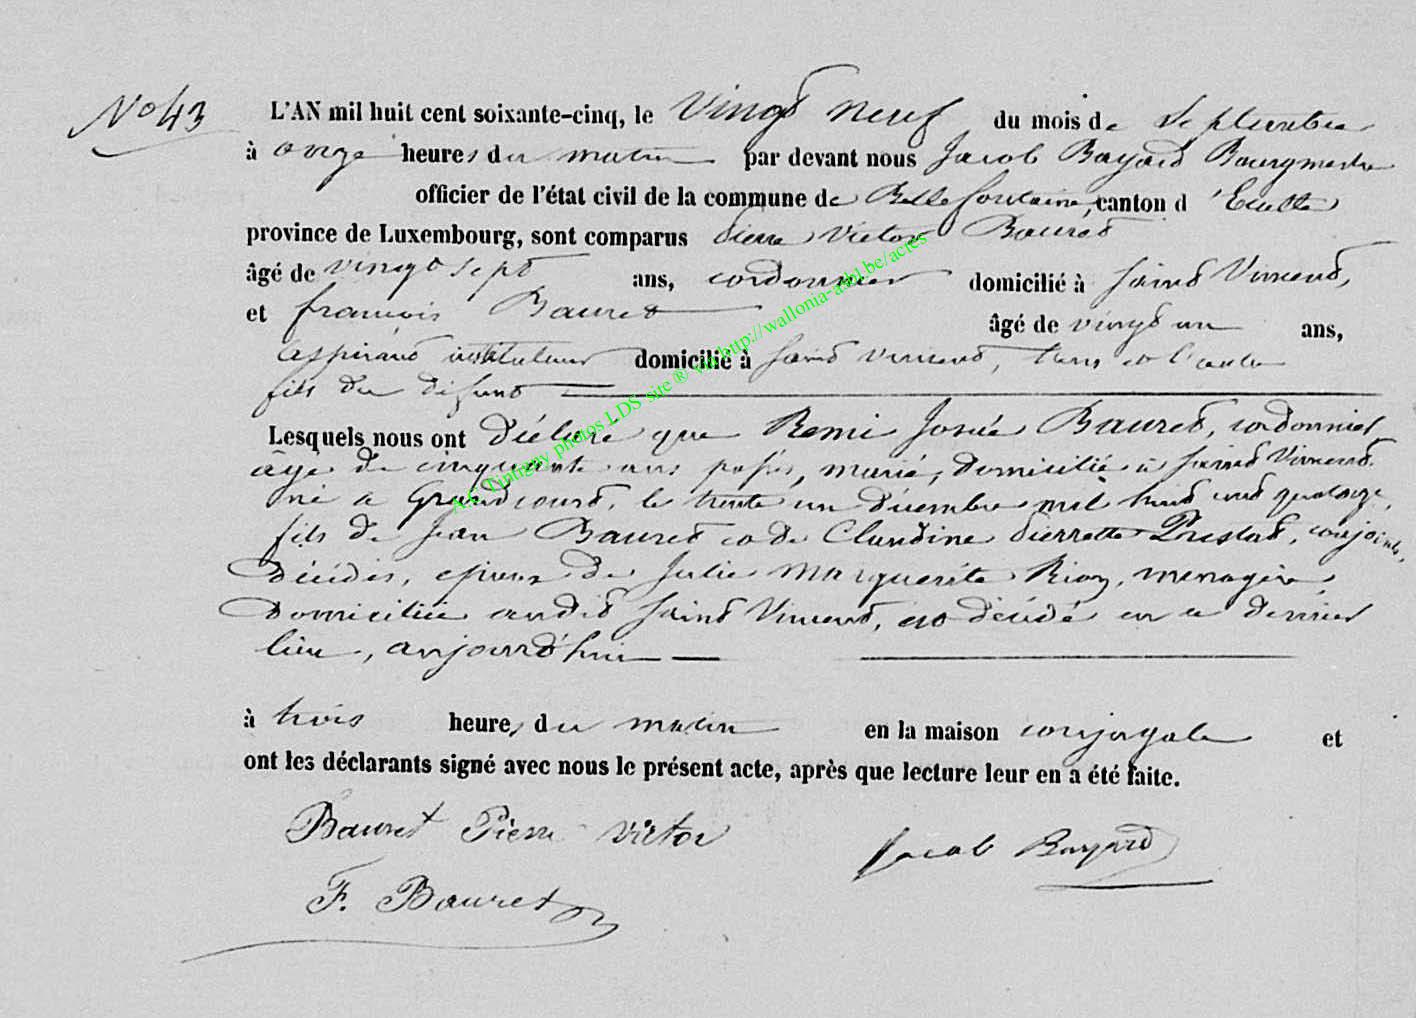 No 43
L'AN mil huit cent soixante-cinq, le vingt neuf du mois de Septembre
à onze heures du matin par devant nous Jacob Bayard Bourgmestre
officier de l'état civil de la commune de Bellefontaine, canton d'Etalle
province de Luxembourg, sont comparus Pierre Victor Bauret
âgé de vingt sept ans, cordonnier domicilié à Saint Vincent,
et françois Bauret âgé de vingt un ans,
aspirant instituteur domicilié à Saint Vincent, l'un et l'autre
fils du défunt
Lesquels nous ont déclaré que Remi Bauret, cordonnier
âgé de cinquante ans passés, marié, domicilié à Saint Vincent
né à Grandcourt, le trente un décembre mil huit cent quatorze,
fils de Jean Bauret et de Claudine Pierrette conjoints,
décédés, epoux de Julie Marguerite menagère,
domiciliée audit Saint Vincent, est décédé en ce dernier
lieu, aujourd'hui
à trois heures du matin en la maison conjugale et
ont les déclarants signé avec nous le présent acte, après que lecture leur en a été faite.
Bauret Pierre Victor
Jacob Bayard
F. Bauret
A.C. Tintigny photos LDS site ® via http://wallonia-asbl.be/actes